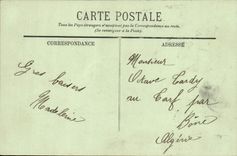 CARTE POSTALE
Tous les Pays étrangers n'acceptent pas la Correspondance au recto.
(Se renseigner à la Poste).
CORRESPONDANCE
ADRESSÉ
Gros baisers
Madeleine
Monsieur
Octave Tardy
au Tarf par
Bône
Algérie